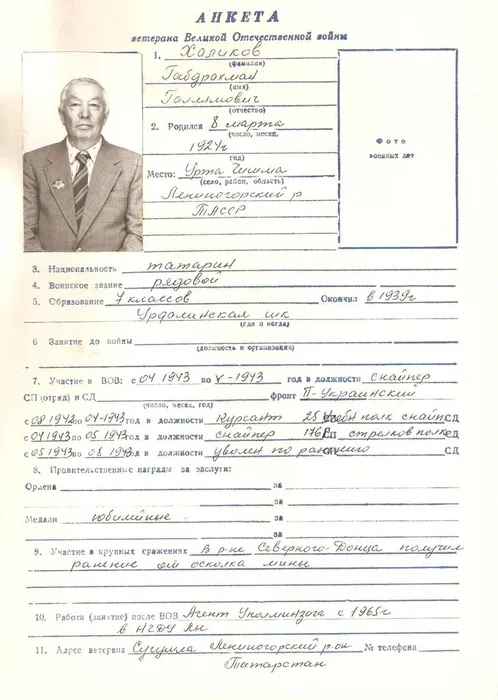 АНКЕТА
ветерана Великой Отечественной войны
1. Халиков
(фамилия)
Габдрахман
(имя)
Галлямович
(отчество)
2. Родился 8 марта
(число, месяц,
1924г
год)
Место: Урта Чишма
(село, район, область)
Лениногорский р
ТАССР
Фото
военных лет
3. Национальность татарин
4. Воинское звание рядовой
5. Образование 7 классов Окончил в 1939г
Урдалинская шк
(где и когда)
6 Занятие до войны
(должность и организация)
7. Участие в ВОВ: с 04 1943 по V-1943 год в должности снайпер
СП (отряд) и СД фронт II-Украинский
(число, месяц, год)
с 08 1942 по 04-1943 год в должности Курсант 25 Учебн полк снайп СД
с 04 1943 по 05 1943 год в должности снайпер 176 СП стрелков полк СД
с 05 1943 по 08 1943 год в должности уволен по ранению СД
8. Правительственные награды за заслуги:
Ордена за
за
Медали юбилейные за
за
9. Участие в крупных сражениях В р-не Северного-Донца получил
ранение от осколка мины
10. Работа (занятие) после ВОВ Агент Уполминзага с 1965г
в НГДУ
11. Адрес ветерана Сугушла Лениногорский р-он № телефона
Татарстан